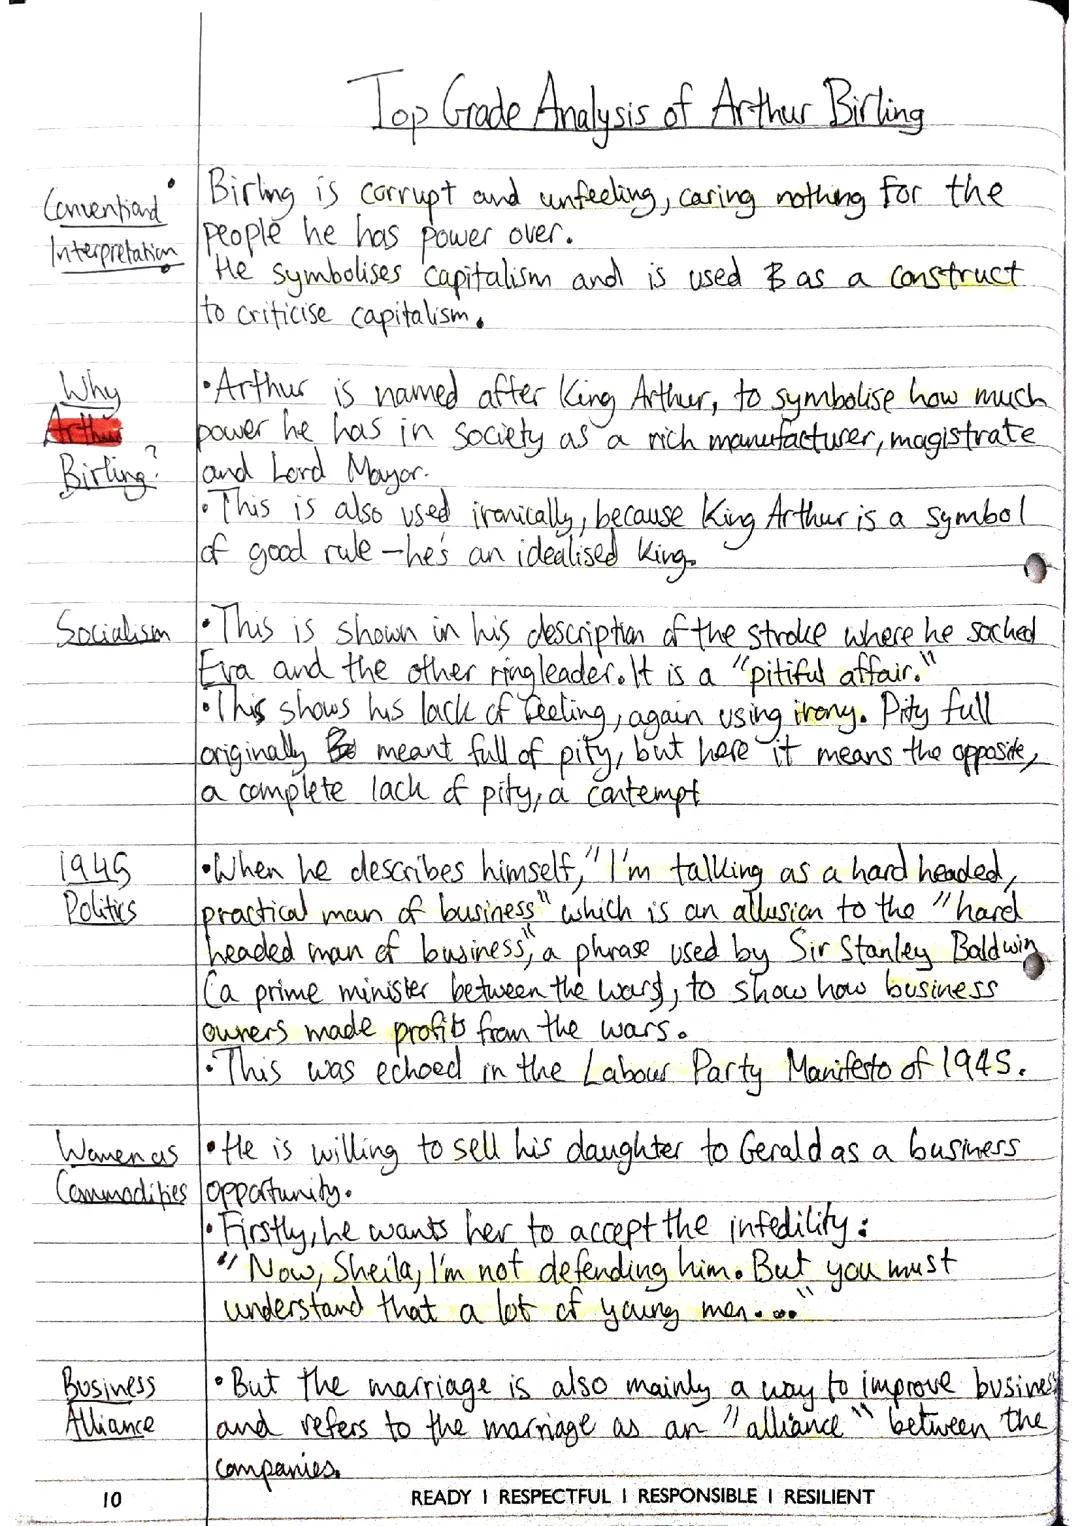 Top Grade Analysis of Arthur Birling
Conventional
Interpretation
• Birling is corrupt and unfeeling, caring nothing for the
people he has power over.
• He symbolises capitalism and is used as a construct
to criticise capitalism.
Why
Arthur
Birling?
• Arthur is named after King Arthur, to symbolise how much
power he has in society as a rich manufacturer, magistrate
and Lord Mayor.
• This is also used ironically, because King Arthur is a symbol
of good rule – he's an idealised king.
Socialism
• This is shown in his description of the stroke where he sacked
Eva and the other ringleader. It is a "pitiful affair."
• This shows his lack of feeling, again using irony. Pity full
originally meant full of pity, but here it means the opposite,
a complete lack of pity, a contempt
1945
Politics
• When he describes himself, "I'm talking as a hard headed,
practical man of business" which is an allusion to the "hard
headed man of business", a phrase used by Sir Stanley Baldwin
(a prime minister between the wars), to show how business
owners made profits from the wars.
• This was echoed in the Labour Party Manifesto of 1945.
Women as
Commodities
• He is willing to sell his daughter to Gerald as a business
opportunity.
• Firstly, he wants her to accept the infedility:
"Now, Sheila, I'm not defending him. But you must
understand that a lot of young men..."
Business
Alliance
• But the marriage is also mainly a way to improve business
and refers to the marriage as an "alliance" between the
companies.
10
READY | RESPECTFUL | RESPONSIBLE | RESILIENT